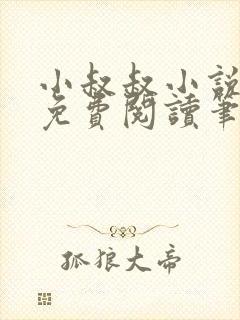 小叔叔小說
免費閱讀筆
孤狼大帝